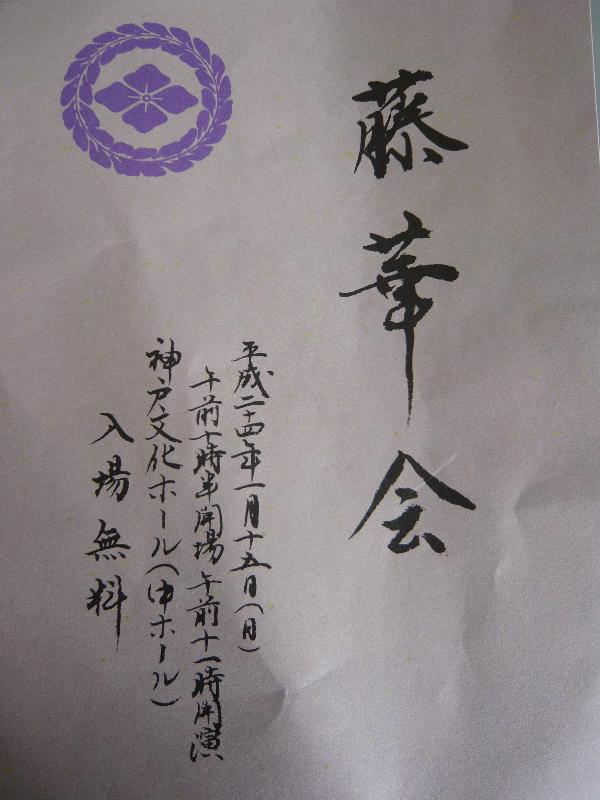 藤華会
平成二十四年一月十五日(日)
午前十時半開場 午前十一時開演
神戸文化ホール(中ホール)
入場無料